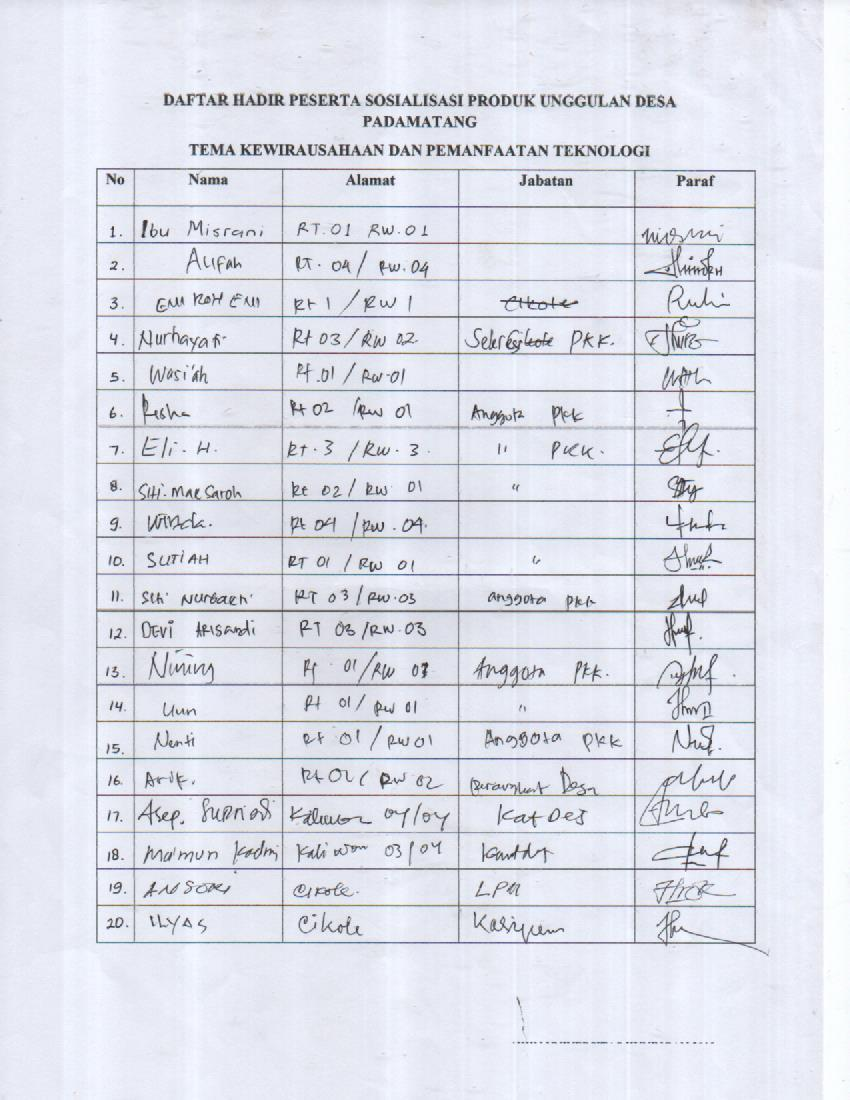 DAFTAR HADIR PESERTA SOSIALISASI PRODUK UNGGULAN DESA
PADAMATANG
TEMA KEWIRAUSAHAAN DAN PEMANFAATAN TEKNOLOGI
No Nama Alamat Jabatan Paraf
1. Ibu Misrani RT.01 RW.01
2. Alifah RT. 04 / RW.04
3. ENI ROHENI Rt 1 / RW 1 Cikole
4. Nurhayati Rt 03 / RW 02 PKK.
5. Wasi'ah Rt.01 / RW.01
6. Rt 02 / RW 01 Anggota PKK
7. Eli. H. Rt. 3 / RW. 3. " PKK.
8. Siti. Maesaroh Rt 02 / RW 01 "
9. Winda. Rt 04 / RW.04.
10. SUTIAH RT 01 / RW 01 "
11. Siti Nurbaeti RT 03 / RW.03 anggota PKK
12. DEVI ARISANDI RT 03 / RW.03
13. Nining Rt 01 / RW Anggota PKK.
14. Uun Rt 01 / RW 01 "
15. Nenti Rt 01 / RW 01 Anggota PKK
16. Arif. Rt RW 02 Perangkat Desa
17. Asep. Supriadi 04/04
18. Ma'mun 03/04
19. ANSORI Cikole. LPM
20. ILYAS Cikole